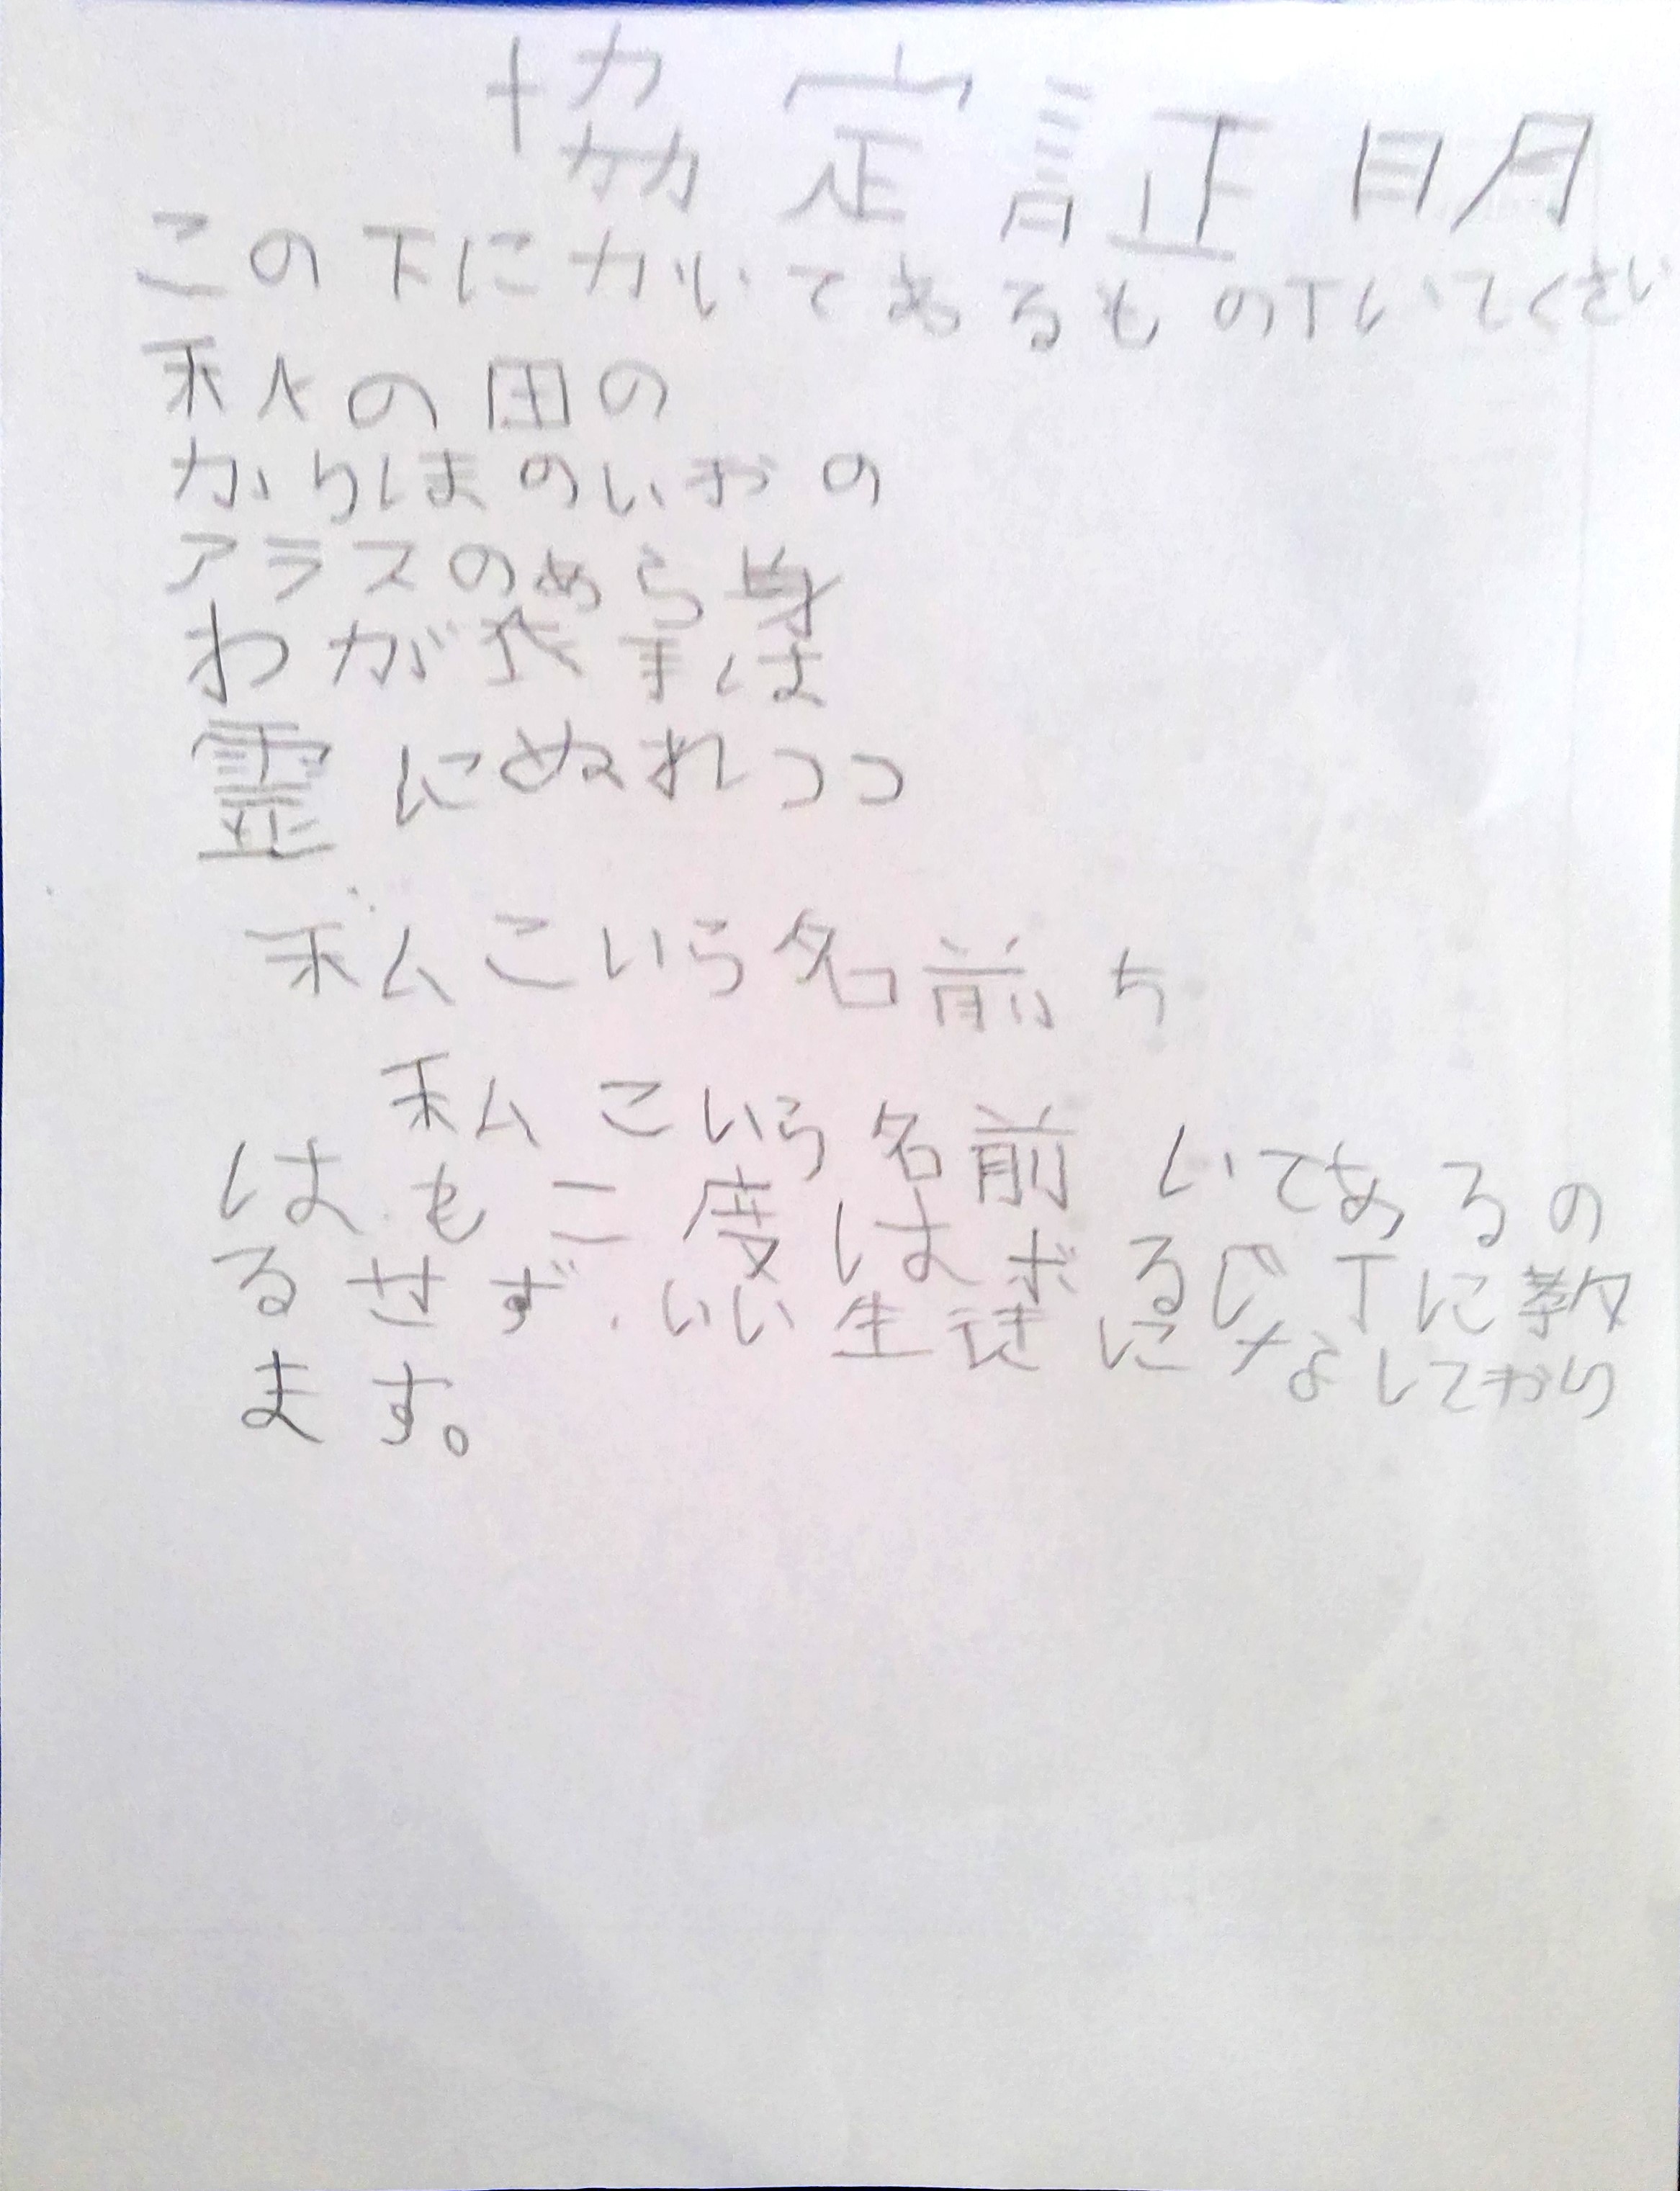 協定証明
この下にかいてあるもの下いてくさい
秋の田の
かりほのいおの
アラスのあら身
わが衣手は
霊にぬれつつ
私こいら名前ち
私こいら名前いてあるの
はも二度はボるじ丁に教
るせず、いい生徒になよしており
ます。